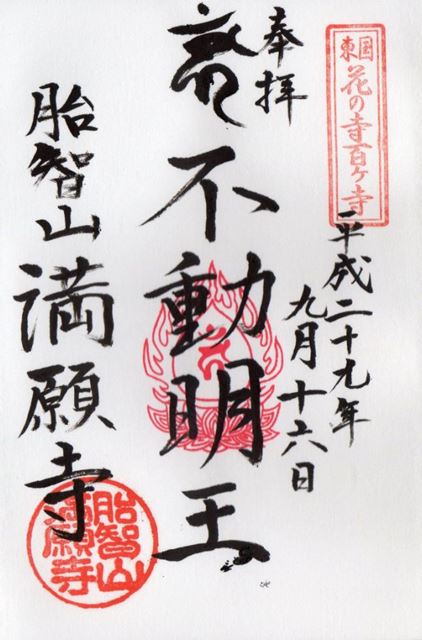 東国
花の寺百ヶ寺
平成二十九年
九月十六日
奉拝
不動明王
胎智山
満願寺
胎智山
満願寺